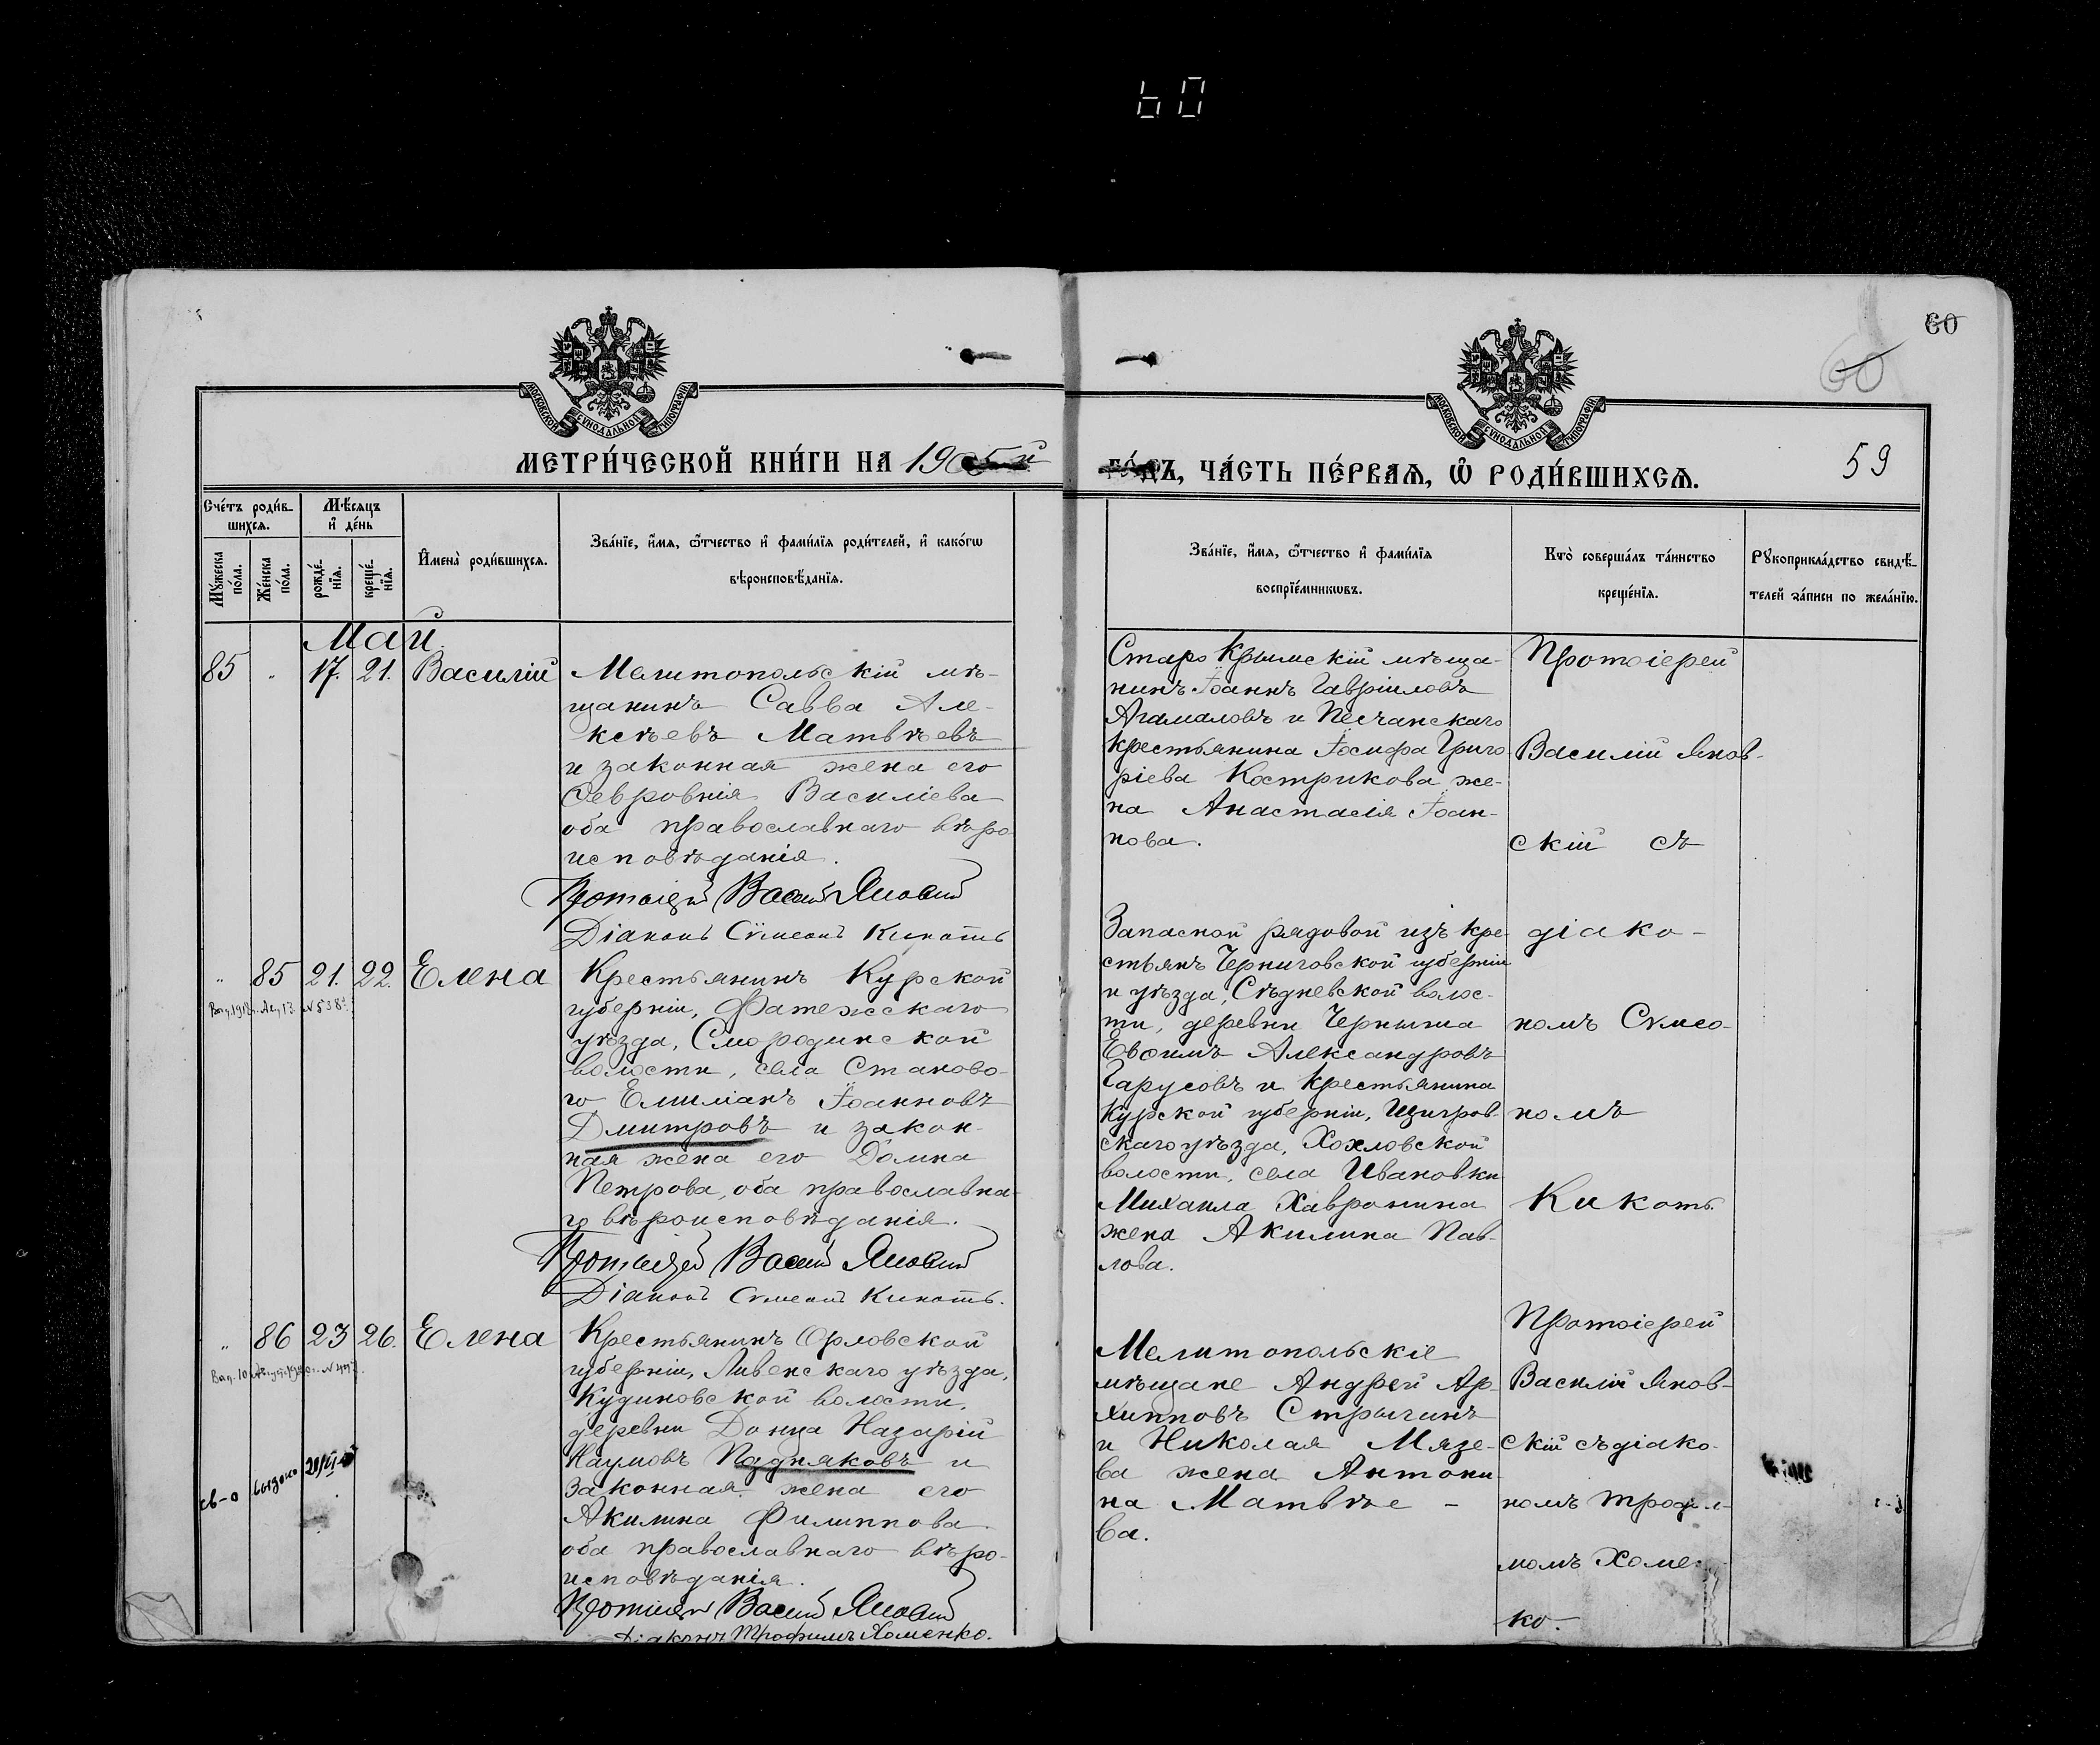 60
60
60
59
МОСКОВСКОЙ СѴНОДАЛЬНОЙ ТИПОГРАФІИ
МОСКОВСКОЙ СѴНОДАЛЬНОЙ ТИПОГРАФІИ
МЕТРИ́ЧЕСКОЙ КНИ́ГИ НА 1905й
ГО́ДЪ, ЧА́СТЬ ПЕ́РВАѦ, Ѡ҆ РОДИ́ВШИХСѦ.
Сче́тъ роди́в-
шихсѧ.
Мꙋ́жеска
по́ла.
Же́нска
по́ла.
Мѣ́сѧцъ
и҆ де́нь
рожде́-
нїѧ.
креще́-
нїѧ.
И҆мена̀ роди́вшихсѧ.
Зва́нїе, и҆́мѧ, ѻ҆́тчество и҆ фами́лїѧ роди́телей, и҆ како́гѡ
вѣроисповѣ́данїѧ.
Зва́нїе, и҆́мѧ, ѻ҆́тчество и҆ фами́лїѧ
воспрїе́мникѡвъ.
Кто̀ соверша́лъ та́инство
креще́нїѧ.
Рꙋкоприкла́дство свидѣ́-
телей за́писи по жела́нїю.
Май.
85 " 17. 21. Василій
Мелитопольскій мѣ-
щанинъ Савва Але-
ксѣевъ Матвѣевъ
и законная жена его
Февронія Василіева
оба православнаго вѣро
исповѣданія.
Протоіерей Василій Яновскій
Діаконъ Сѵмеонъ Кикоть
Старо Крымскій мѣща-
нинъ Іоаннъ Гавріиловъ
Агамаловъ и Песчанскаго
крестьянина Іосифа Григо
ріева Кострикова же-
на Анастасія Іоан-
нова.
Протоіерей
Василій Янов-
скій съ
діако-
номъ Сѵмео-
номъ
Кикоть.
" 85 21. 22. Елена
Крестьянинъ Курской
губерніи, Фатежскаго
уѣзда, Смородинской
волости, села Станово-
го Емиліанъ Іоанновъ
Дмитровъ и закон-
ная жена его Домна
Петрова, оба православна-
го вѣроисповѣданія.
Протоіерей Василій Яновскій
Діаконъ Сѵмеонъ Кикоть.
Запасной рядовой изъ кре-
стьянъ Черниговской губерніи
и уѣзда, Сѣдневской волос-
ти, деревни Черныша
Евфимъ Александровъ
Гарусовъ и крестьянина
Курской губерніи, Щигров-
скаго уѣзда, Хохловской
волости, села Ивановки
Михаила Хавронина
жена Акилина Пав-
лова.
" 86 23 26. Елена
Крестьянинъ Орловской
губерніи, Ливенскаго уѣзда,
Кудиновской волости,
деревни Донца Назарій
Наумовъ и
законная жена его
Акилина Филиппова
оба православнаго вѣро-
исповѣданія.
Протоіерей Василій Яновскій
Діаконъ Трофимъ Хоменко.
Мелитопольскіе
мѣщане Андрей Ар-
хипповъ Стрычинъ
и Николая Мязе-
ва жена Антони-
на Матвѣе -
ва.
Протоіерей
Василій Янов-
скій съ діако-
номъ Трофи-
момъ Хомен-
ко.